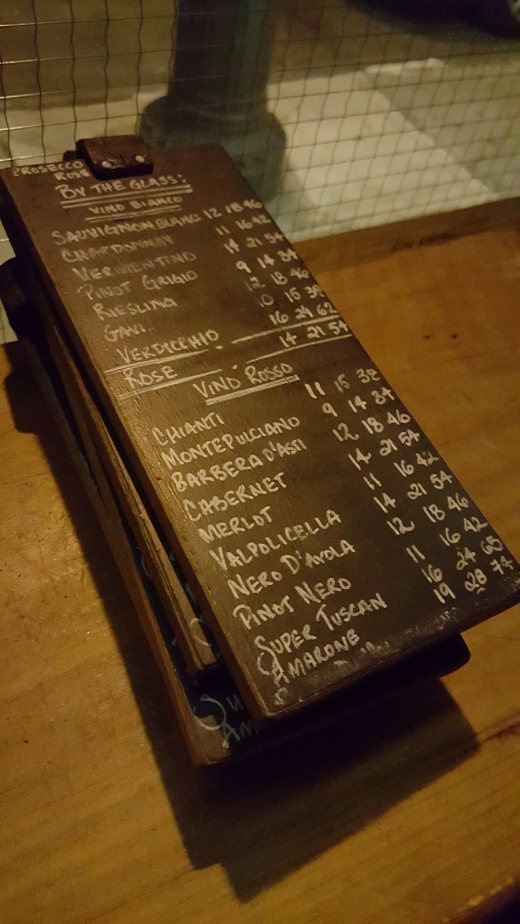 PROSECCO
ROSE
BY THE GLASS:
VINO BIANCO
SAUVIGNON BLANC 12 18 46
CHARDONNAY 11 16 42
VERMENTINO 14 21 54
PINOT GRIGIO 9 14 34
RIESLING 12 18 46
GAVI 15 38
VERDICCHIO - 16 24 62
ROSE - 14 21 54
VINO ROSSO
CHIANTI 11 15 38
MONTEPULCIANO 9 14 34
BARBERA D'ASTI 12 18 46
CABERNET 14 21 54
MERLOT 11 16 42
VALPOLICELLA 14 21 54
NERO D'AVOLA 12 18 46
PINOT NERO 11 16 42
SUPER TUSCAN 16 24 65
AMARONE 19 28 74